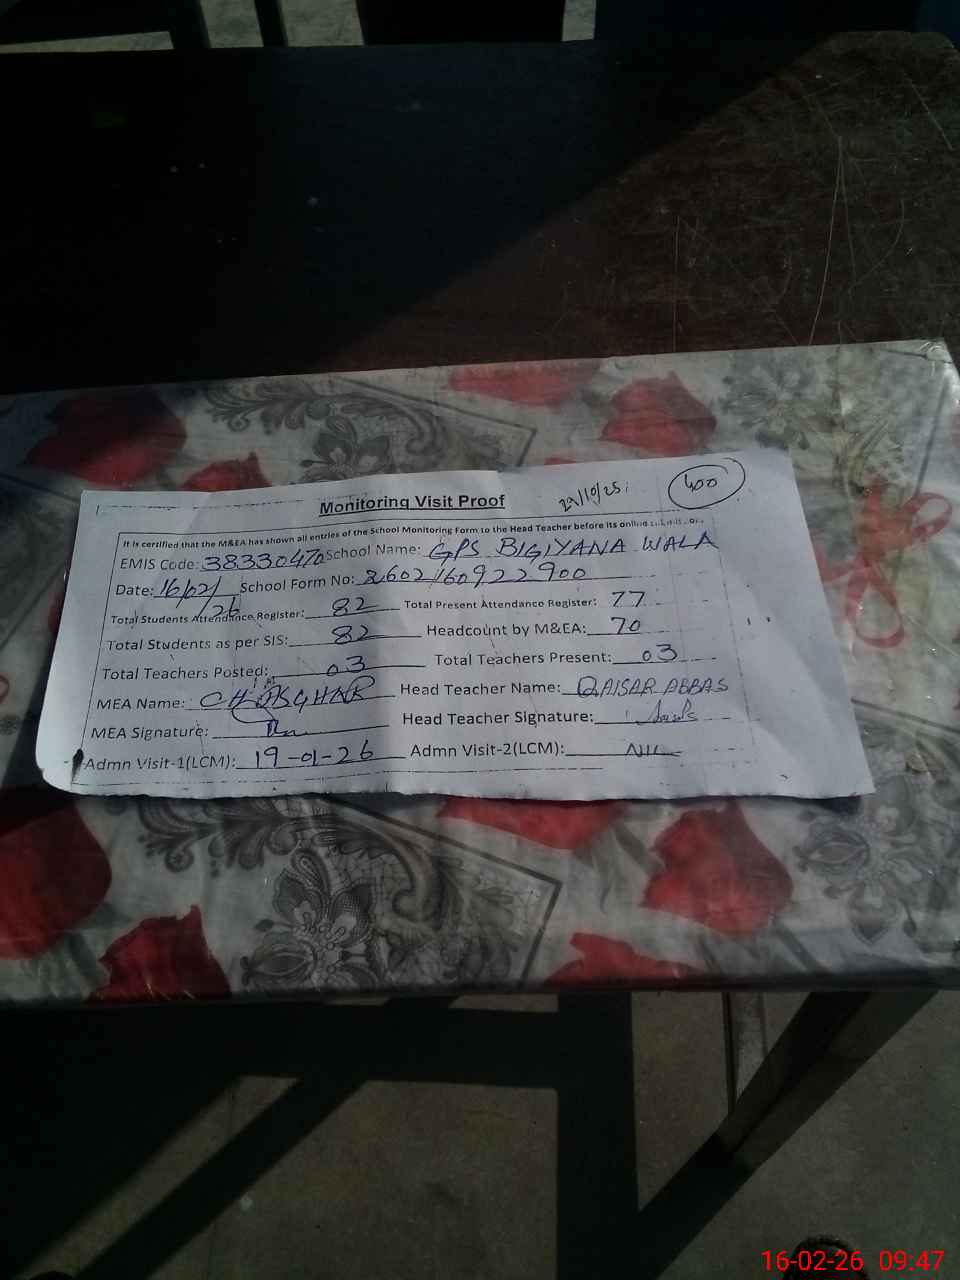 Monitoring Visit Proof
29/10/25
400
It is certified that the M&EA has shown all entries of the School Monitoring Form to the Head Teacher before its online
EMIS Code: 38330470 School Name: GPS BIGIYANA WALA
Date: 16/02/26 School Form No: 2602160922900
Total Students Attendance Register: 82 Total Present Attendance Register: 77
Total Students as per SIS: 82 Headcount by M&EA: 70
Total Teachers Posted: 03 Total Teachers Present: 03
MEA Name: CH ASGHAR Head Teacher Name: QAISAR ABBAS
MEA Signature: Head Teacher Signature:
Admn Visit-1(LCM): 19-01-26 Admn Visit-2(LCM): NIL
16-02-26 09:47